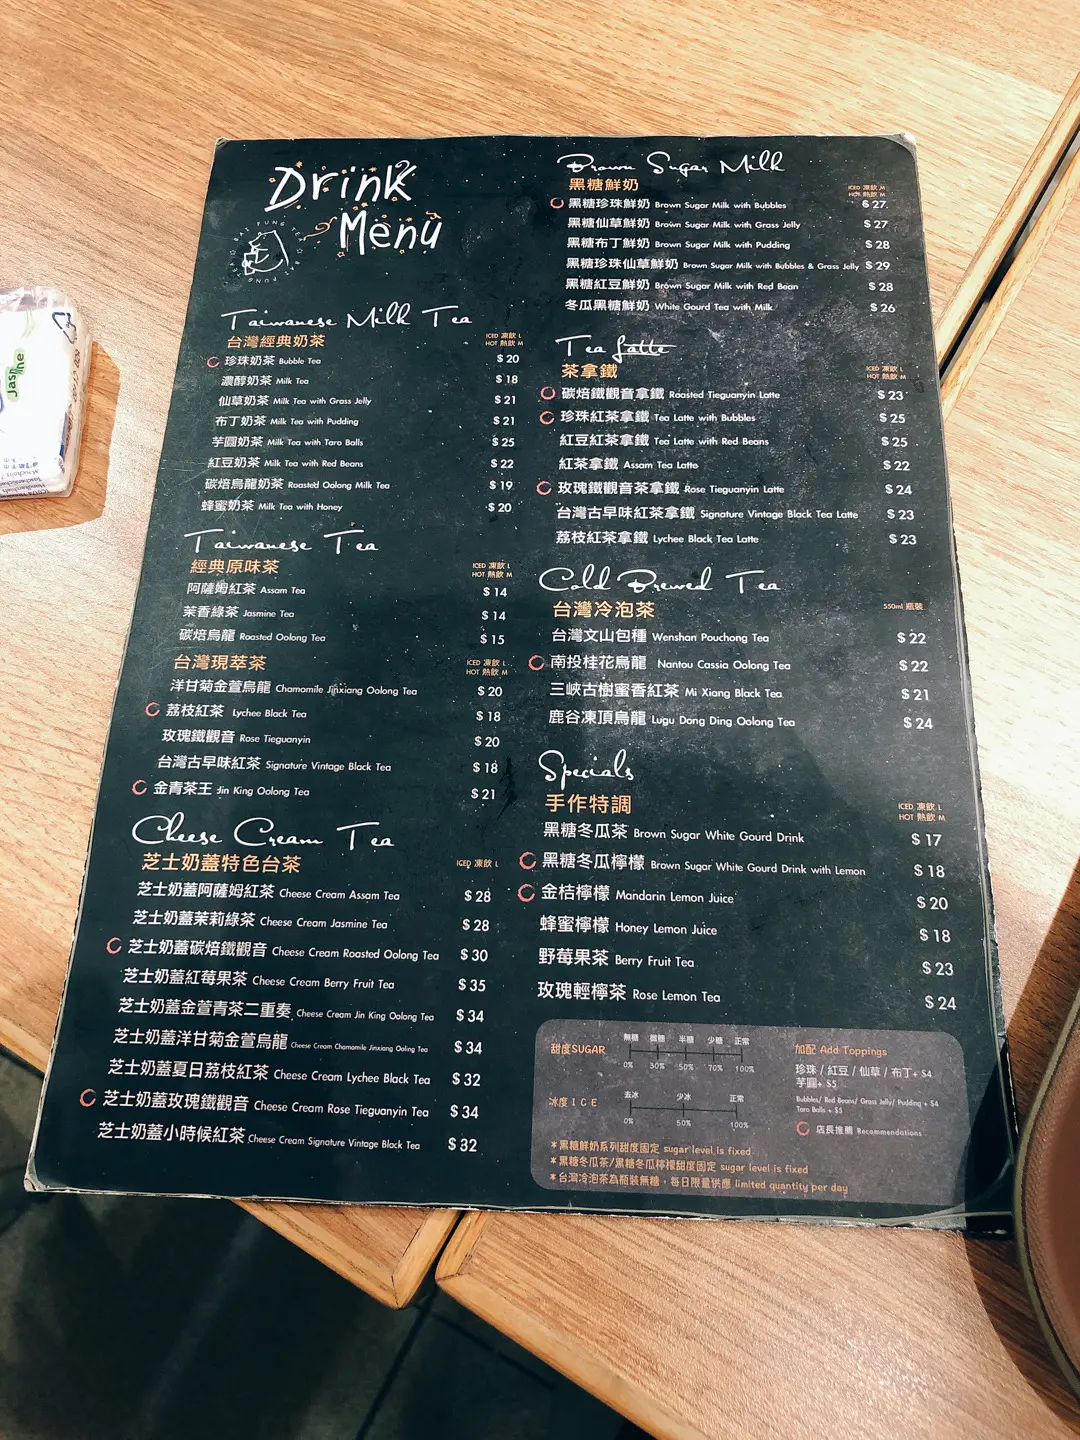 Drink
Menu
Taiwanese Milk Tea
台灣經典奶茶 ICED 凍飲 L
HOT 熱飲 M
珍珠奶茶 Bubble Tea $ 20
濃醇奶茶 Milk Tea $ 18
仙草奶茶 Milk Tea with Grass Jelly $ 21
布丁奶茶 Milk Tea with Pudding $ 21
芋圓奶茶 Milk Tea with Taro Balls $ 25
紅豆奶茶 Milk Tea with Red Beans $ 22
碳焙烏龍奶茶 Roasted Oolong Milk Tea $ 19
蜂蜜奶茶 Milk Tea with Honey $ 20
Taiwanese Tea
經典原味茶 ICED 凍飲 L
HOT 熱飲 M
阿薩姆紅茶 Assam Tea $ 14
茉香綠茶 Jasmine Tea $ 14
碳焙烏龍 Roasted Oolong Tea $ 15
台灣現萃茶 ICED 凍飲 L
HOT 熱飲 M
洋甘菊金萱烏龍 Chamomile Jinxiang Oolong Tea $ 20
荔枝紅茶 Lychee Black Tea $ 18
玫瑰鐵觀音 Rose Tieguanyin $ 20
台灣古早味紅茶 Signature Vintage Black Tea $ 18
金青茶王 Jin King Oolong Tea $ 21
Cheese Cream Tea
芝士奶蓋特色台茶 ICED 凍飲 L
芝士奶蓋阿薩姆紅茶 Cheese Cream Assam Tea $ 28
芝士奶蓋茉莉綠茶 Cheese Cream Jasmine Tea $ 28
芝士奶蓋碳焙鐵觀音 Cheese Cream Roasted Oolong Tea $ 30
芝士奶蓋紅莓果茶 Cheese Cream Berry Fruit Tea $ 35
芝士奶蓋金萱青茶二重奏 Cheese Cream Jin King Oolong Tea $ 34
芝士奶蓋洋甘菊金萱烏龍 Cheese Cream Chamomile Jinxiang Ooling Tea $ 34
芝士奶蓋夏日荔枝紅茶 Cheese Cream Lychee Black Tea $ 32
芝士奶蓋玫瑰鐵觀音 Cheese Cream Rose Tieguanyin Tea $ 34
芝士奶蓋小時候紅茶 Cheese Cream Signature Vintage Black Tea $ 32
Brown Sugar Milk
黑糖鮮奶 ICED 凍飲 M
HOT 熱飲 M
黑糖珍珠鮮奶 Brown Sugar Milk with Bubbles $ 27
黑糖仙草鮮奶 Brown Sugar Milk with Grass Jelly $ 27
黑糖布丁鮮奶 Brown Sugar Milk with Pudding $ 28
黑糖珍珠仙草鮮奶 Brown Sugar Milk with Bubbles & Grass Jelly $ 29
黑糖紅豆鮮奶 Brown Sugar Milk with Red Bean $ 28
冬瓜黑糖鮮奶 White Gourd Tea with Milk $ 26
Tea Latte
茶拿鐵 ICED 凍飲 L
HOT 熱飲 M
碳焙鐵觀音拿鐵 Roasted Tieguanyin Latte $ 23
珍珠紅茶拿鐵 Tea Latte with Bubbles $ 25
紅豆紅茶拿鐵 Tea Latte with Red Beans $ 25
紅茶拿鐵 Assam Tea Latte $ 22
玫瑰鐵觀音茶拿鐵 Rose Tieguanyin Latte $ 24
台灣古早味紅茶拿鐵 Signature Vintage Black Tea Latte $ 23
荔枝紅茶拿鐵 Lychee Black Tea Latte $ 23
Cold Brewed Tea
台灣冷泡茶 550ml 瓶裝
台灣文山包種 Wenshan Pouchong Tea $ 22
南投桂花烏龍 Nantou Cassia Oolong Tea $ 22
三峽古樹蜜香紅茶 Mi Xiang Black Tea $ 21
鹿谷凍頂烏龍 Lugu Dong Ding Oolong Tea $ 24
Specials
手作特調 ICED 凍飲 L
HOT 熱飲 M
黑糖冬瓜茶 Brown Sugar White Gourd Drink $ 17
黑糖冬瓜檸檬 Brown Sugar White Gourd Drink with Lemon $ 18
金桔檸檬 Mandarin Lemon Juice $ 20
蜂蜜檸檬 Honey Lemon Juice $ 18
野莓果茶 Berry Fruit Tea $ 23
玫瑰輕檸茶 Rose Lemon Tea $ 24
甜度SUGAR 無糖 微糖 半糖 少糖 正常
0% 30% 50% 70% 100%
冰度 ICE 去冰 少冰 正常
0% 50% 100%
加配 Add Toppings
珍珠 / 紅豆 / 仙草 / 布丁+ $4
芋圓+ $5
Bubbles/ Red Beans/ Grass Jelly/ Pudding + $4
Taro Balls + $5
店長推薦 Recommendations
*黑糖鮮奶系列甜度固定 sugar level is fixed
*黑糖冬瓜茶/黑糖冬瓜檸檬甜度固定 sugar level is fixed
*台灣冷泡茶為瓶裝無糖，每日限量供應 limited quantity per day